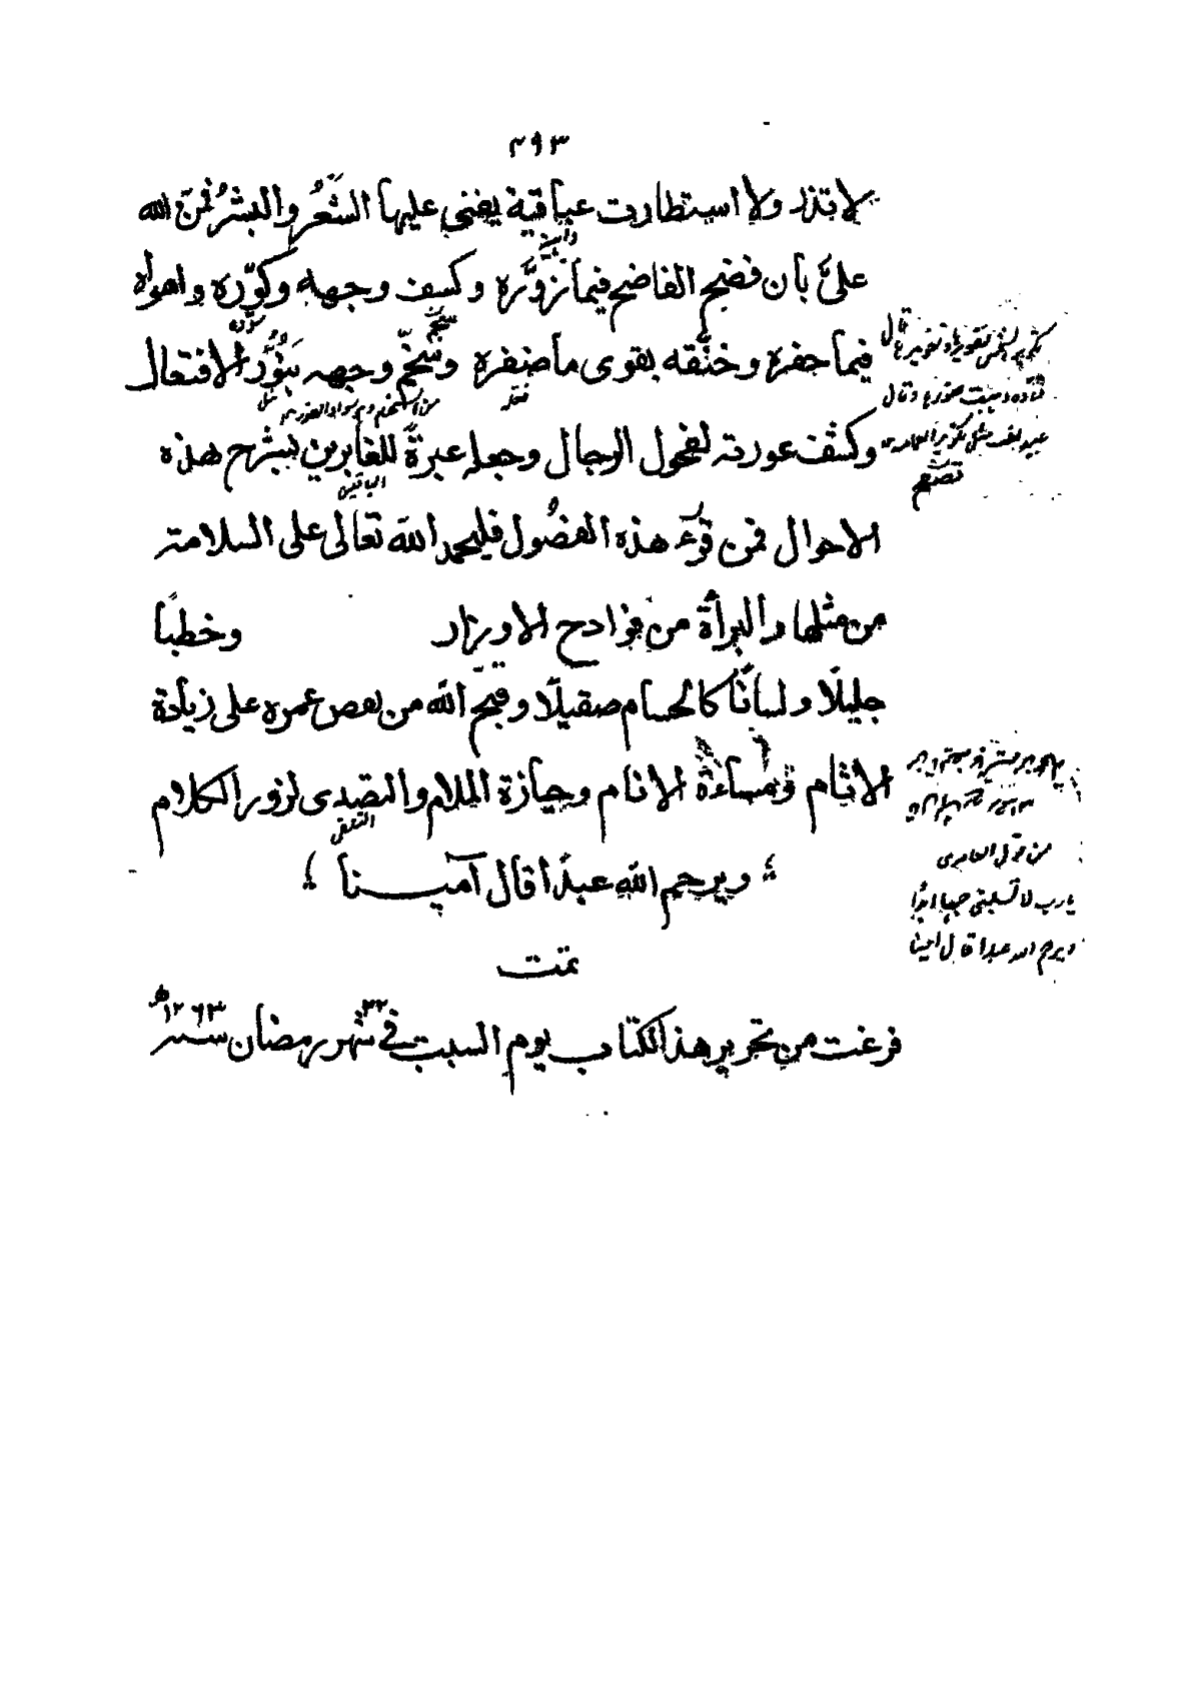 ٣٩٣
لا تذر ولا استطارت عباقية يفنى عليها الشَّعُر والبشرُ فمنّ الله
علىَّ بان فضح الفاضح فيما زوَّره وكسف وجهه وكوّره واهواه
فيما حفره وخنّقه بقوى ما ضفره وسخّم وجهه بنُوُر الافتعال
وكشف عورته لفحول الرجال وجعله عبرةً للغابرين بشرح هذه
الباقين
الاحوال فمن قرء هذه الفضُول فليحمد اللّه تعالى على السلامة
من مثلها والبرأة من فوادح الاوزار وخطبًا
جليلًا ولسانًا كالحسام صقيلًا وقبح اللّه من بعض عمره على زيادة
الاثام ومساءة الانام وحيازة الملام والتصدى لزور الكلام
ويرحم الله عبدًا قال آمينا
تمت
فرغت من تحرير هذ الكتاب يوم السبت في ٢٢ شهر رمضان سنة ١٢٦٣ ه
من قول العامرى
يا رب لا تسلبنى حبها ابدًا
ويرحم الله عبدا قال امينا